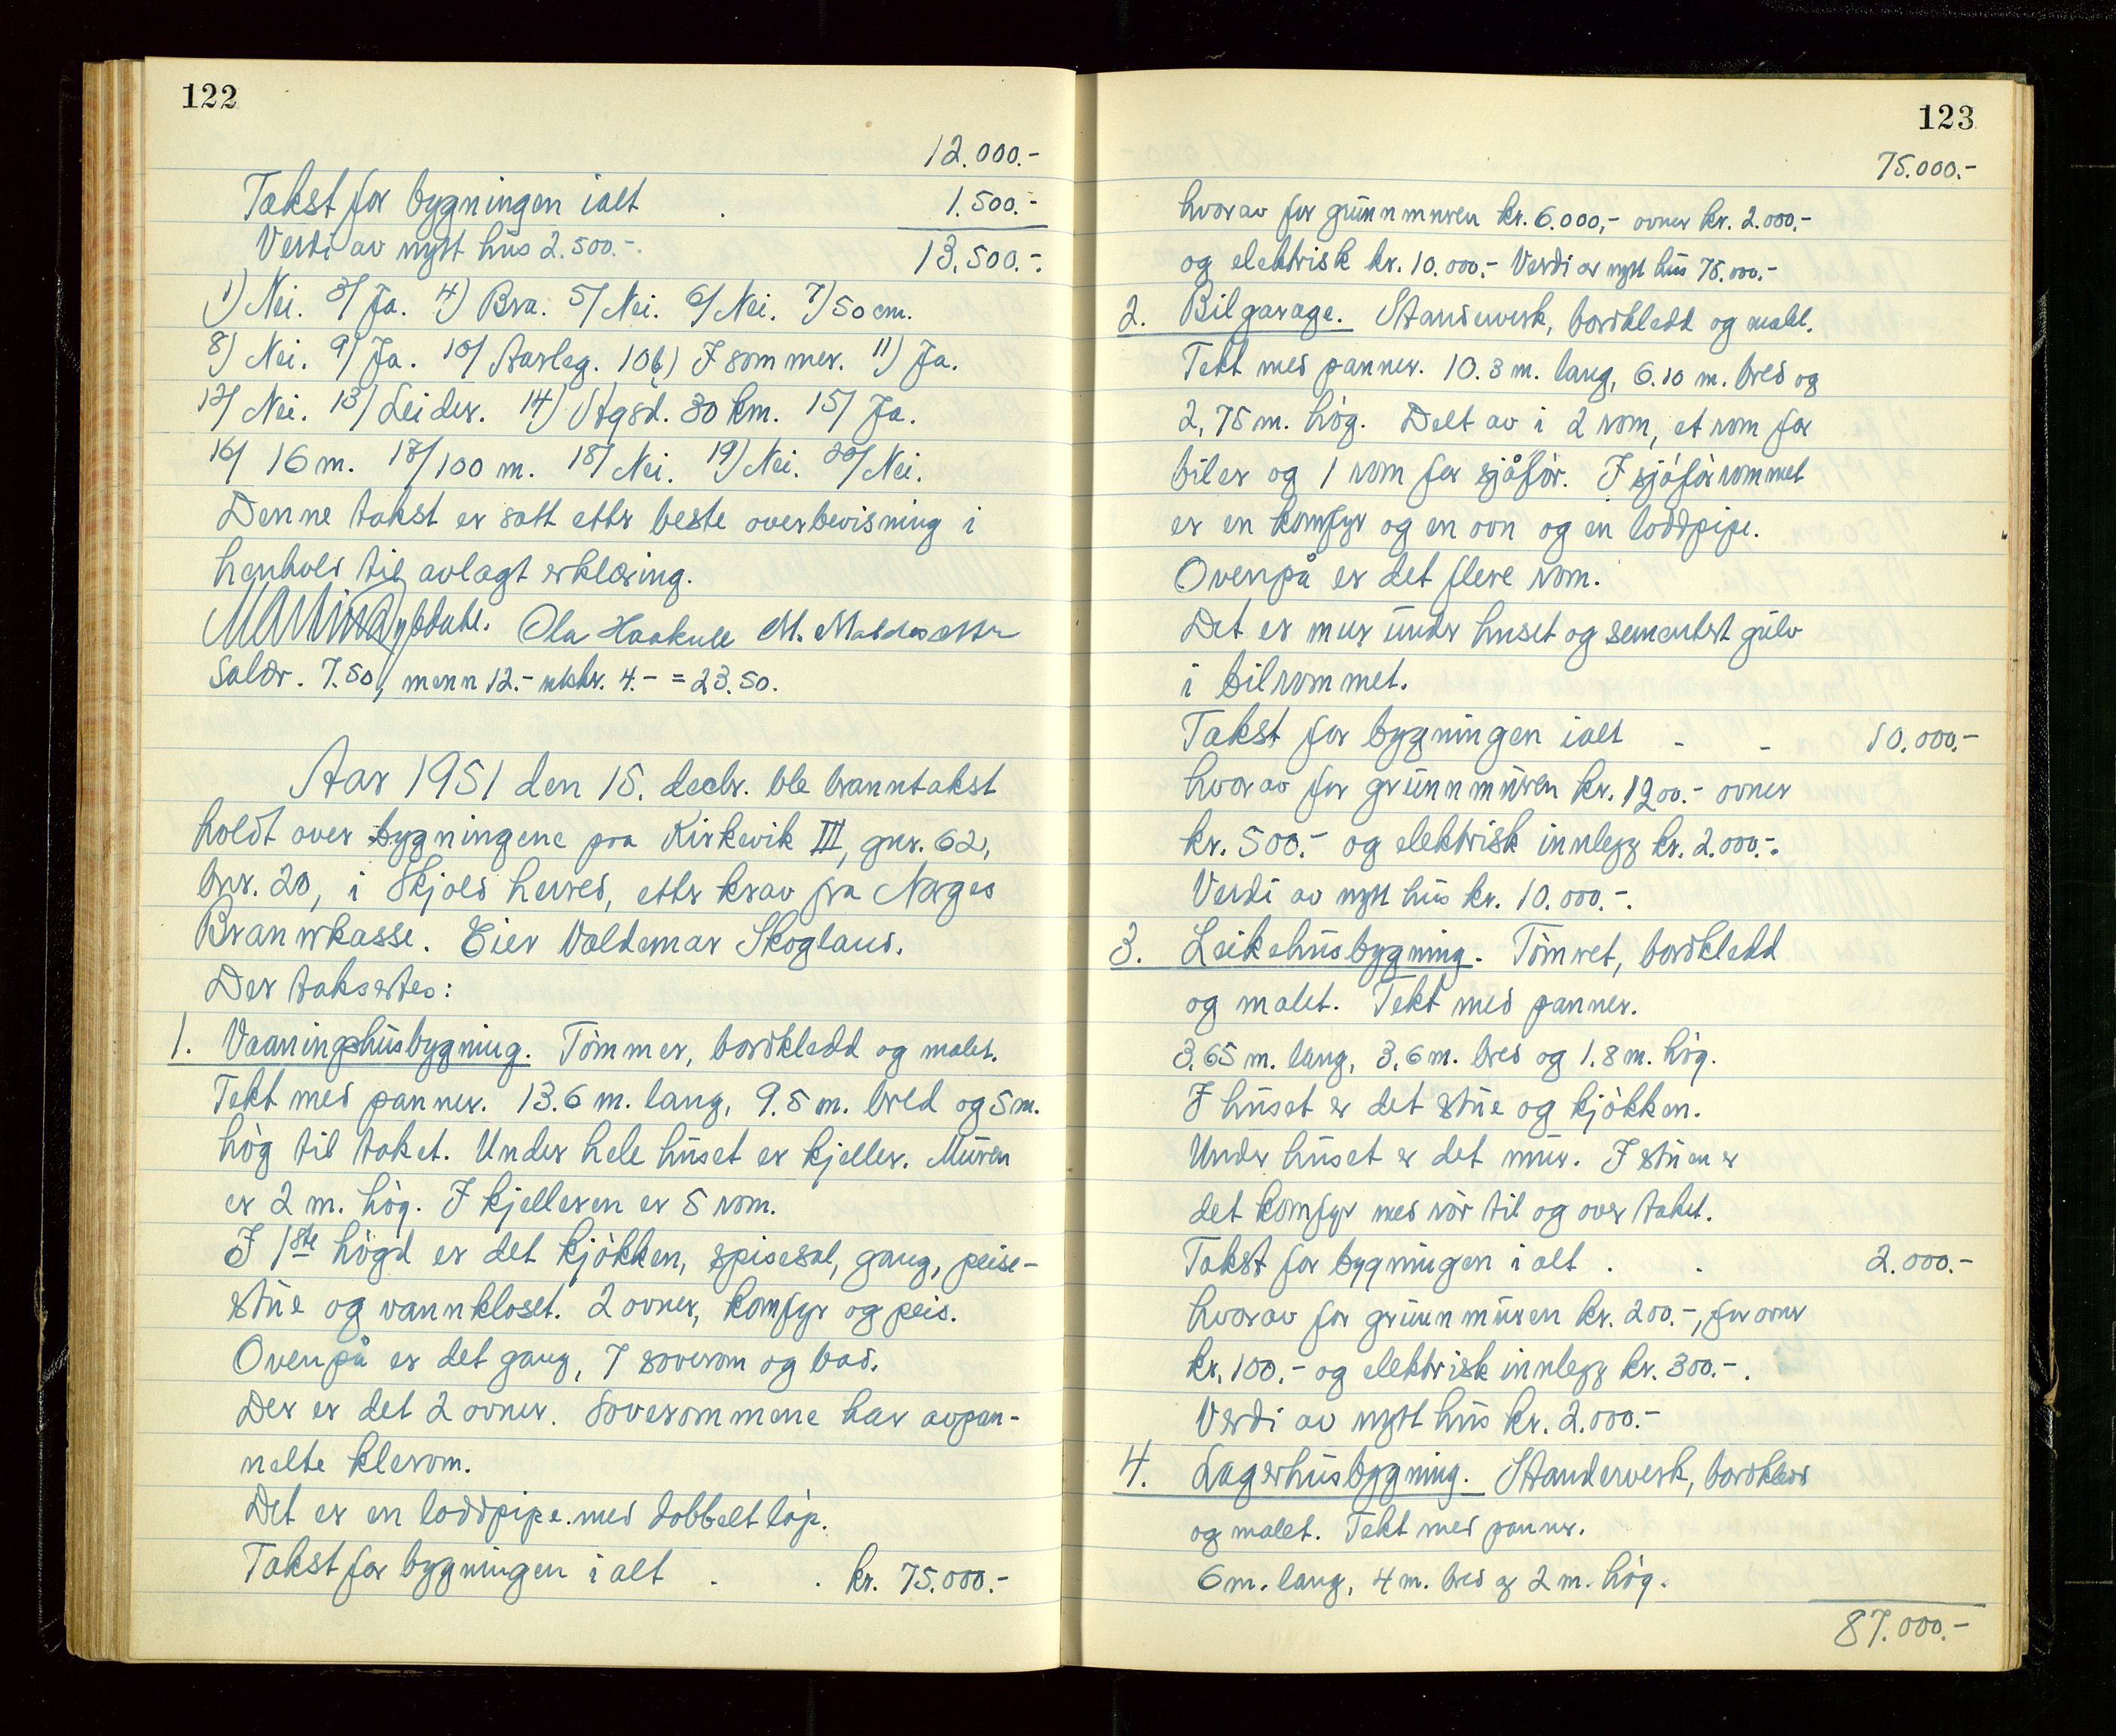 122
12.000.-
Takst for bygningen ialt . 1.500.-
Verdi av nytt hus 2.500.-. 13.500.-.
1) Nei. 3/ Ja. 4) Bra. 5/ Nei. 6/ Nei. 7) 50 cm.
8) Nei. 9) Ja. 10/ Aarleg. 10b) I sommer. 11) Ja.
12/ Nei. 13) Leider. 14) Stgsd. 30 km. 15/ Ja.
16/ 16 m. 17/ 100 m. 18/ Nei. 19) Nei. 20/ Nei.
Denne takst er satt etter beste overbevisning i
henhold til avlagt erklæring.
Ola Haakull M.
Salær. 7.50, menn 12.- utskr. 4.- = 23.50.
Aar 1951 den 15. decbr. ble branntakst
holdt over bygningene paa Kirkevik III, gnr. 62,
bnr. 20, i Skjold herred, etter krav fra Norges
Brannkasse. Eier Valdemar Skogland.
Der taksertes:
1. Vaaningshusbygning. Tømmer, bordkledd og malet.
Tekt med panner. 13.6 m. lang, 9.5 m. bred og 5 m.
høg til taket. Under hele huset er kjeller. Muren
er 2 m. høg. I kjelleren er 5 rom.
I 1ste høgd er det kjøkken, spisesal, gang, peise-
stue og vannkloset. 2 ovner, komfyr og peis.
Ovenpå er det gang, 7 soverom og bad.
Der er det 2 ovner. Soverommene har avpan-
nelte klerom.
Det er en loddpipe med dobbelt løp.
Takst for bygningen i alt . . kr. 75.000.-
123
75.000.-
hvorav for grunnmuren kr. 6.000,- ovner kr. 2.000.-
og elektrisk kr. 10.000.- Verdi av nytt hus 75.000.-
2. Bilgarage. Standerverk, bordkledd og malt.
Tekt med panner. 10.3 m. lang, 6.10 m. bred og
2,75 m. høg. Delt av i 2 rom, et rom for
biler og 1 rom for sjåfør. I sjåførrommet
er en komfyr og en ovn og en loddpipe.
Ovenpå er det flere rom.
Det er mur under huset og sementert gulv
i bilrommet.
Takst for bygningen ialt - - 10.000.-
hvorav for grunnmuren kr. 1200.- ovner
kr. 500.- og elektrisk innlegg kr. 2.000.-.
Verdi av nytt hus kr. 10.000.-.
3. Leikehusbygning. Tømret, bordkledd
og malet. Tekt med panner.
3.65 m. lang, 3.6 m. bred og 1.8 m. høg.
I huset er det stue og kjøkken.
Under huset er det mur. I stuen er
det komfyr med rør til og over taket.
Takst for bygningen i alt . . 2.000.-
hvorav for grunnmuren kr. 200.-, for ovner
kr. 100.- og elektrisk innlegg kr. 300.-.
Verdi av nytt hus kr. 2.000.-
4. Lagerhusbygning. Standerverk, bordkledd
og malet. Tekt med panner.
6 m. lang, 4 m. bred og 2 m. høg.
87.000.-